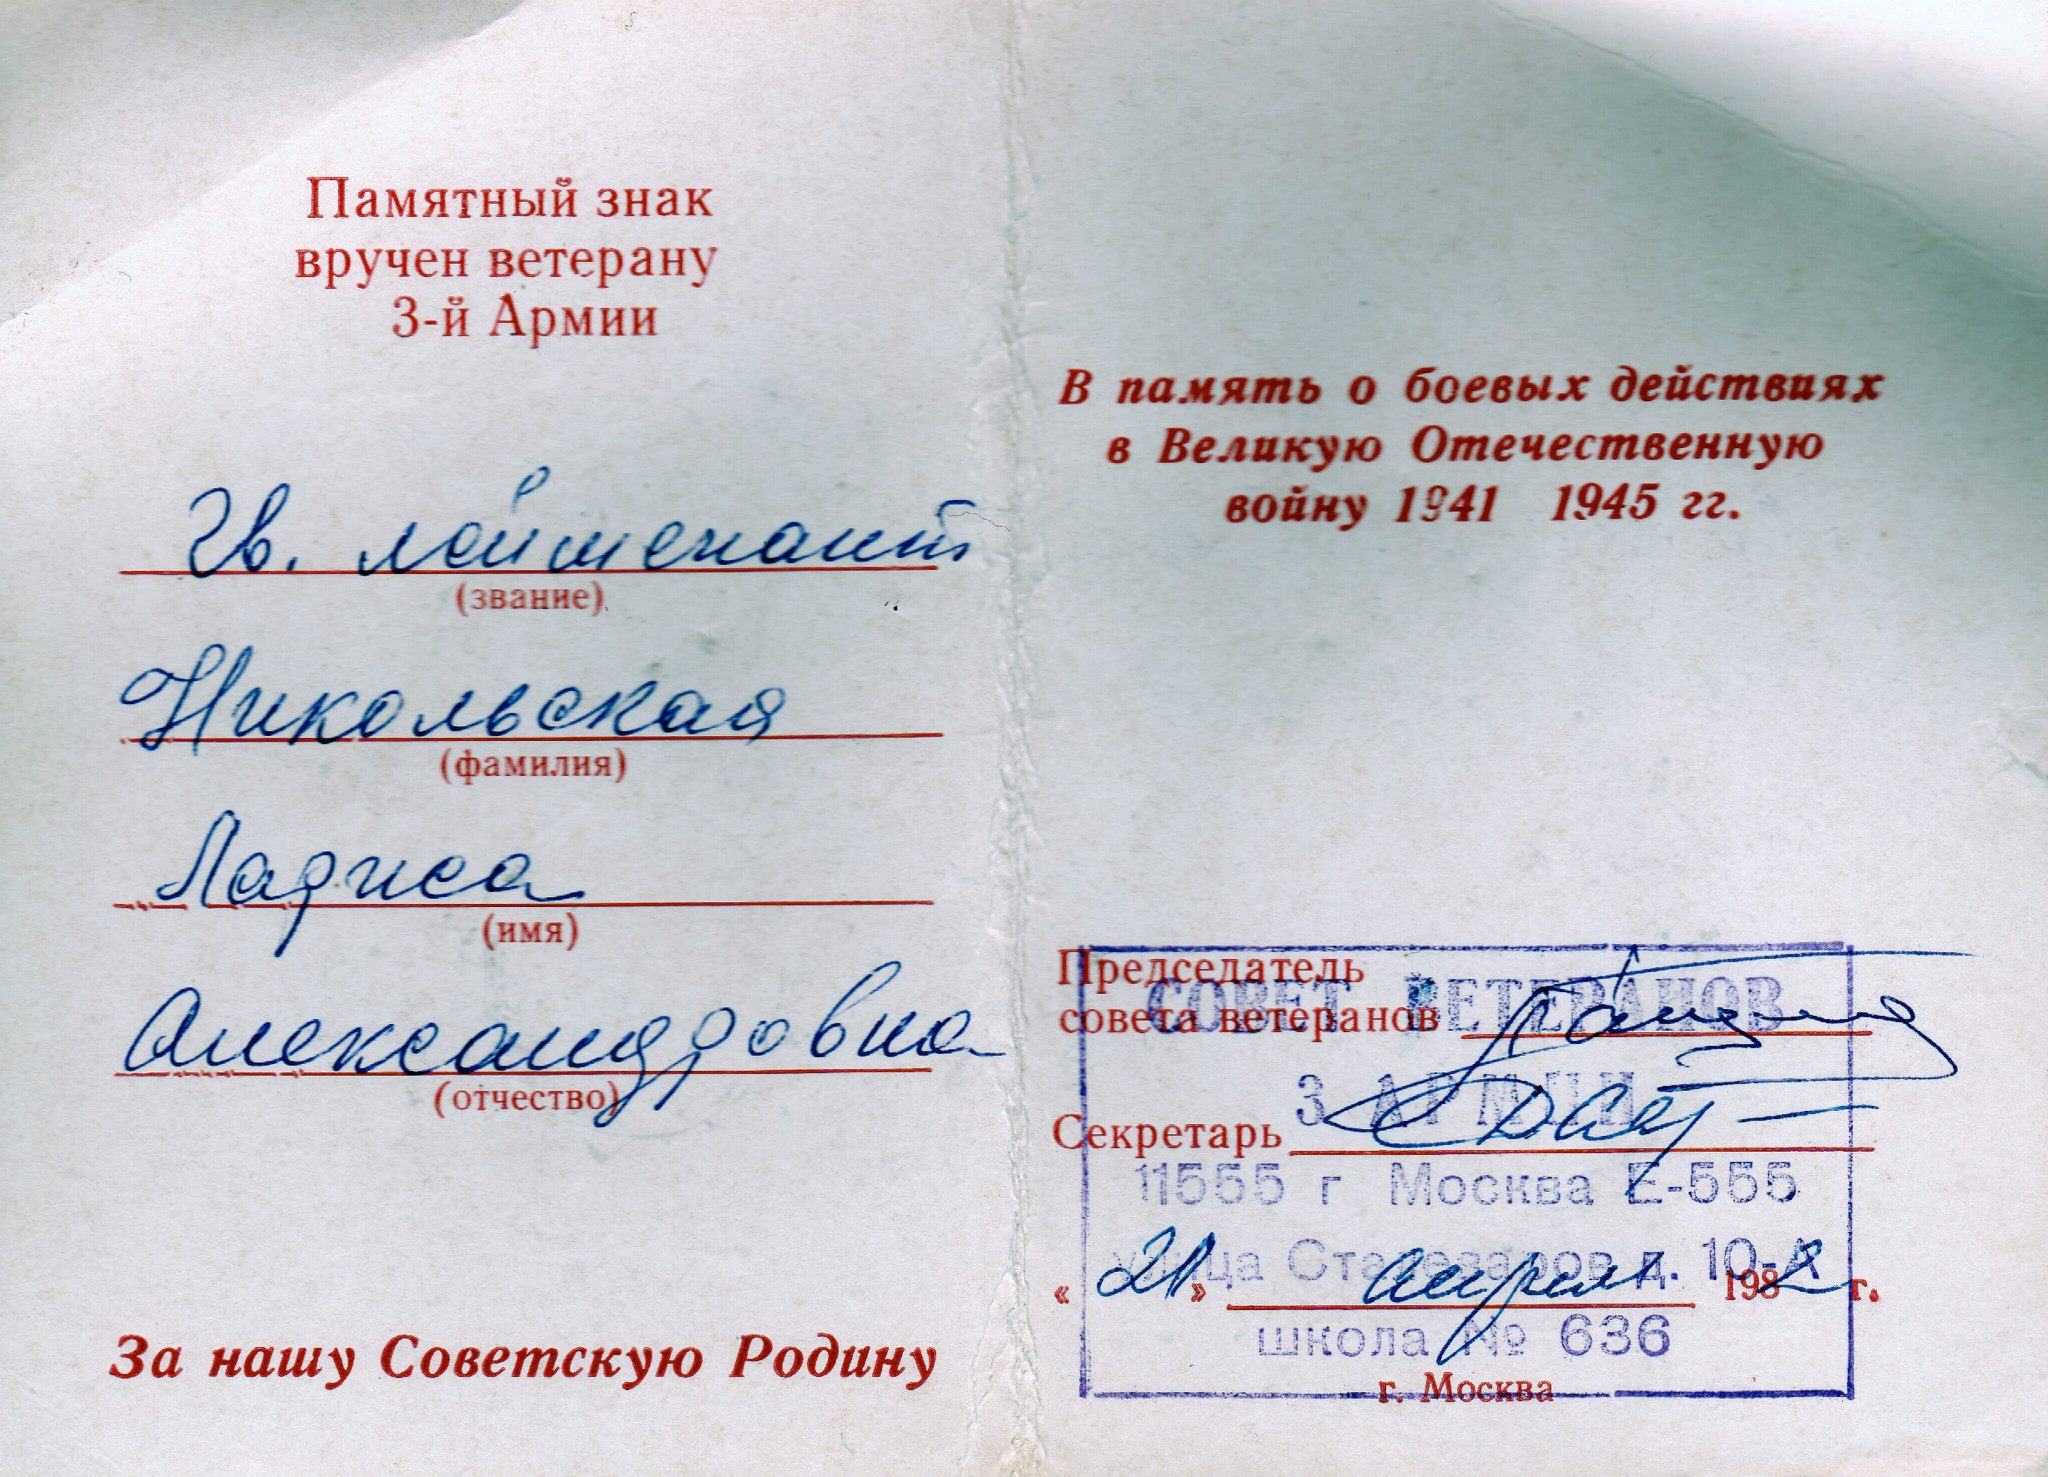 Памятный знак
вручен ветерану
3-й Армии
Гв. лейтенант
(звание)
Никольская
(фамилия)
Лариса
(имя)
Александровна
(отчество)
За нашу Советскую Родину
В память о боевых действиях
в Великую Отечественную
войну 1941 1945 гг.
Председатель
совета ветеранов
Секретарь
« 21 » апреля 1982 г.
г. Москва
СОВЕТ ВЕТЕРАНОВ
3 АРМИИ
11555 г Москва Е-555
улица Сталеваров д. 10-А
школа № 636